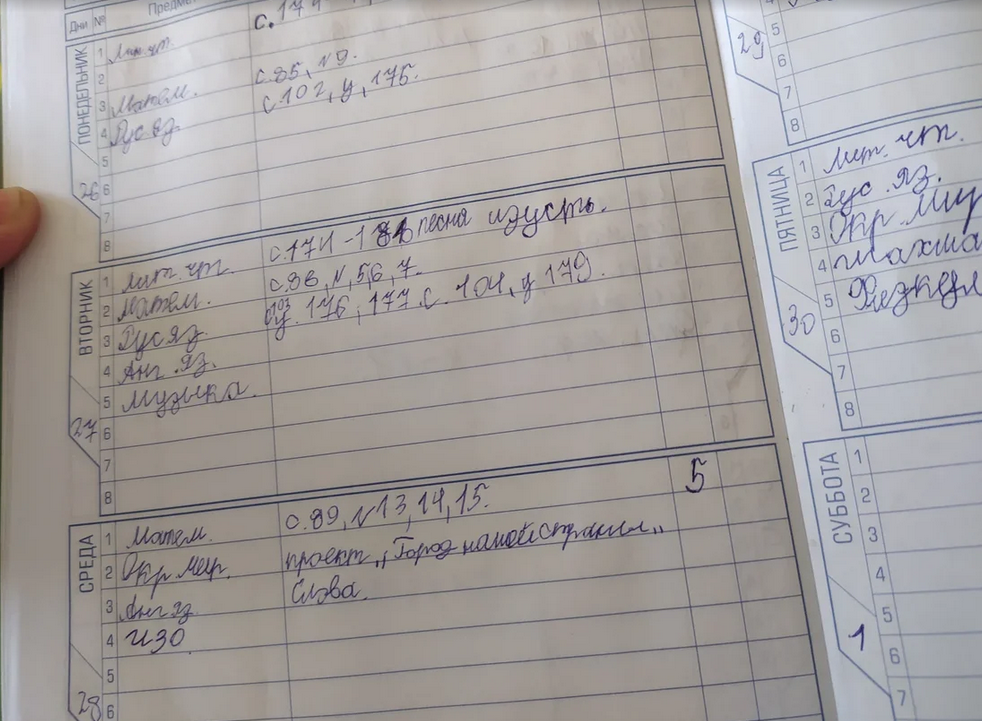 Дни № Предмет
ПОНЕДЕЛЬНИК
26
1 Лит. чт. с. 174
2
3 Матем. с. 85, №9.
4 Рус яз с. 102, у, 175.
5
6
7
8
ВТОРНИК
27
1 Лит. чт. с. 174-181 песна изусть.
2 Матем. с. 86, №, 5, 6, 7.
3 Рус яз. у. 176, 177 с. 104, у 179.
4 Анг. яз.
5 Музыка.
6
7
8
СРЕДА
28
1 Матем. с. 89, №13, 14, 15. 5
2 Окр. мир. проект „Город нашей страны„
3 Анг яз Слова.
4 ИЗО
5
6
29
5
6
7
8
ПЯТНИЦА
30
1 Лит. чт.
2 Рус. яз.
3 Окр. мир
4 Шахма
5 Физкул
6
7
8
СУББОТА
1
1
2
3
4
5
6
7